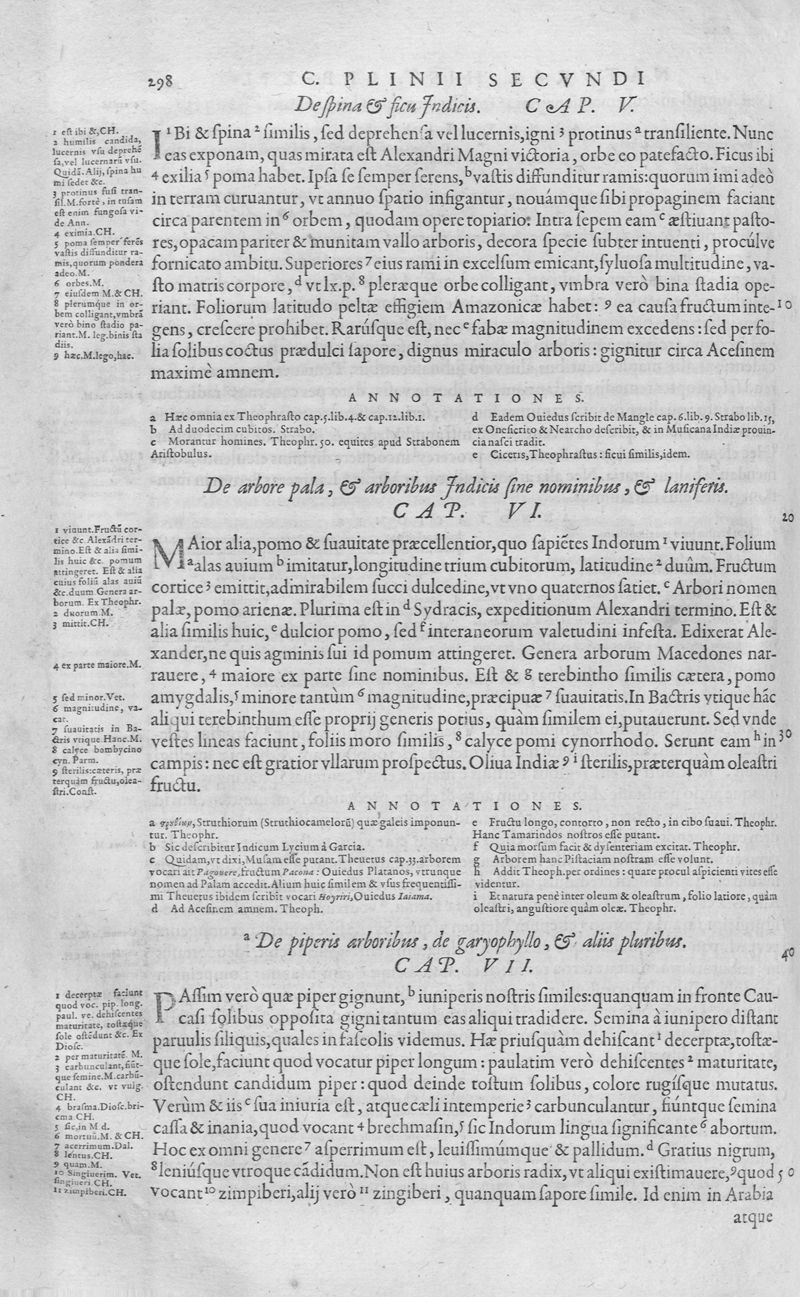 298 C. PLINII SECVNDI
De ſpina & ficu Indicis. CAP. V.
1 eſt ibi &, CH.
2 humilis candida,
lucernis vſu deprehē
ſa, vel lucernarū vſu.
Quidā. Alij, ſpina hu
mi ſedet &c.
3 protinus fuſi tran-
ſil. M. fortè, in rufam
eſt enim fungoſa vi-
de Ann.
4 eximia. CH.
5 poma ſemper ferēs
vaſtis diffunditur ra-
mis, quorum pondera
adeo. M.
6 orbes. M.
7 eiuſdem M. & CH.
8 plerumq́ue in or-
bem colligant, vmbrā
verò bino ſtadio pa-
riant. M. leg. binis ſta
diis.
9 hæc. M. lego, hac.
I 1 Bi & ſpina 2 ſimilis, ſed deprehenſa vel lucernis, igni 3 protinus a tranſiliente. Nunc
eas exponam, quas mirata eſt Alexandri Magni victoria, orbe eo patefacto. Ficus ibi
4 exilia 5 poma habet. Ipſa ſe ſemper ſerens, b vaſtis diffunditur ramis: quorum imi adeò
in terram curuantur, vt annuo ſpatio infigantur, nouámque ſibi propaginem faciant
circa parentem in 6 orbem, quodam opere topiario: Intra ſepem eam c æſtiuant paſto-
res, opacam pariter & munitam vallo arboris, decora ſpecie ſubter intuenti, procúlve
fornicato ambitu. Superiores 7 eius rami in excelſum emicant, ſyluoſa multitudine, va-
ſto matris corpore, d vt lx. p. 8 pleræque orbe colligant, vmbra verò bina ſtadia ope-
riant. Foliorum latitudo peltæ effigiem Amazonicæ habet: 9 ea cauſa fructum inte- 10
gens, creſcere prohibet. Rarúſque eſt, nec e fabæ magnitudinem excedens: ſed per fo-
lia ſolibus coctus prædulci ſapore, dignus miraculo arboris: gignitur circa Aceſinem
maximè amnem.
ANNOTATIONES.
a Hæc omnia ex Theophraſto cap. 5. lib. 4. & cap. 12. lib. 1.
b Ad duodecim cubitos. Strabo.
c Morantur homines. Theophr. 50. equites apud Strabonem
Ariſtobulus.
d Eadem Ouiedus ſcribit de Mangle cap. 6. lib. 9. Strabo lib. 15,
ex Oneſicrito & Nearcho deſcribit, & in Muſicana Indiæ prouin-
cia naſci tradit.
e Ciceris, Theophraſtus: ficui ſimilis, idem.
De arbore pala, & arboribus Indicis ſine nominibus, & laniferis.
CAP. VI. 20
1 viuunt. Fructū cor-
tice &c. Alexādri ter-
mino. Eſt & alia ſimi-
lis huic &c. pomum
attingeret. Eſt & alia
cuius foliū alas auiū
&c. duum Genera ar-
borum. Ex Theophr.
2 duorum M.
3 mittit. CH.
4 ex parte maiore. M.
5 ſed minor. Vet.
6 magnitudine, va-
cat.
7 ſuauitatis in Ba-
ctris vtique Hanc. M.
8 calyce bombycino
cyn. Parm.
9 ſterilis: cæteris, præ
terquàm fructu, olea-
ſtri. Conſt.
MAior alia, pomo & ſuauitate præcellentior, quo ſapiētes Indorum 1 viuunt. Folium
a alas auium b imitatur, longitudine trium cubitorum, latitudine 2 duûm. Fructum
cortice 3 emittit, admirabilem ſucci dulcedine, vt vno quaternos ſatiet. c Arbori nomen
palæ, pomo arienæ. Plurima eſt in d Sydracis, expeditionum Alexandri termino. Eſt &
alia ſimilis huic, e dulcior pomo, ſed f interaneorum valetudini infeſta. Edixerat Ale-
xander, ne quis agminis ſui id pomum attingeret. Genera arborum Macedones nar-
rauere, 4 maiore ex parte ſine nominibus. Eſt & g terebintho ſimilis cætera, pomo
amygdalis, 5 minore tantùm 6 magnitudine, præcipuæ 7 ſuauitatis. In Bactris vtique hāc
aliqui terebinthum eſſe proprij generis potius, quàm ſimilem ei, putauerunt. Sed vnde
veſtes lineas faciunt, foliis moro ſimilis, 8 calyce pomi cynorrhodo. Serunt eam h in 30
campis: nec eſt gratior vllarum proſpectus. Oliua Indiæ 9 i ſterilis, præterquàm oleaſtri
fructu.
ANNOTATIONES.
a Struthiorum (Struthiocamelorū) quæ galeis imponun-
tur. Theophr.
b Sic deſcribitur Indicum Lycium à Garcia.
c Quidam, vt dixi, Muſam eſſe putant. Theuetus cap. 33. arborem
vocari ait Pagouere, fructum Pacona: Ouiedus Platanos, vtrunque
nomen ad Palam accedit. Alium huic ſimilem & vſus frequentiſſi-
mi Theuetus ibidem ſcribit vocari Hoyriri, Ouiedus Iaiama.
d Ad Aceſinem amnem. Theoph.
e Fructu longo, contorto, non recto, in cibo ſuaui. Theophr.
Hanc Tamarindos noſtros eſſe putant.
f Quia morſum facit & dyſenteriam excitat. Theophr.
g Arborem hanc Piſtaciam noſtram eſſe volunt.
h Addit Theoph. per ordines: quare procul aſpicienti vites eſſe
videntur.
i Et natura penè inter oleum & oleaſtrum, folio latiore, quàm
oleaſtri, anguſtiore quàm oleæ. Theophr.
a De piperis arboribus, de garyophyllo, & aliis pluribus.
CAP. VII. 40
1 decerptæ faciunt
quod voc. pip. long.
paul. ve. dehiſcentes
maturitate, toſtæque
ſole oſtēdunt &c. Ex
Dioſc.
2 per maturitatē. M.
3 carbunculant, fiūt-
que ſemine. M. carbū-
culant &c. vt vulg.
CH.
4 braſma. Dioſc. bri-
cma CH.
5 ſic, in M d.
6 mortuū. M. & CH.
7 acerrimum. Dal.
8 lentus. CH.
9 quam. M.
10 Singiuerim. Vet.
ſingiueri CH.
11 zimpiberi. CH.
PAſſim verò quæ piper gignunt, b iuniperis noſtris ſimiles: quanquam in fronte Cau-
caſi ſolibus oppoſita gigni tantum eas aliqui tradidere. Semina à iunipero diſtant
paruulis ſiliquis, quales in faſeolis videmus. Hæ priuſquàm dehiſcant 1 decerptæ, toſtæ-
que ſole, faciunt quod vocatur piper longum: paulatim verò dehiſcentes 2 maturitate,
oſtendunt candidum piper: quod deinde toſtum ſolibus, colore rugiſque mutatus.
Verùm & iis c ſua iniuria eſt, atque cæli intemperie 3 carbunculantur, fiúntque ſemina
caſſa & inania, quod vocant 4 brechmaſin, 5 ſic Indorum lingua ſignificante 6 abortum.
Hoc ex omni genere 7 aſperrimum eſt, leuiſſimúmque & pallidum. d Gratius nigrum,
8 leniúſque vtroque cādidum. Non eſt huius arboris radix, vt aliqui exiſtimauere, 9 quod 50
vocant 10 zimpiberi, alij verò 11 zingiberi, quanquam ſapore ſimile. Id enim in Arabia
atque